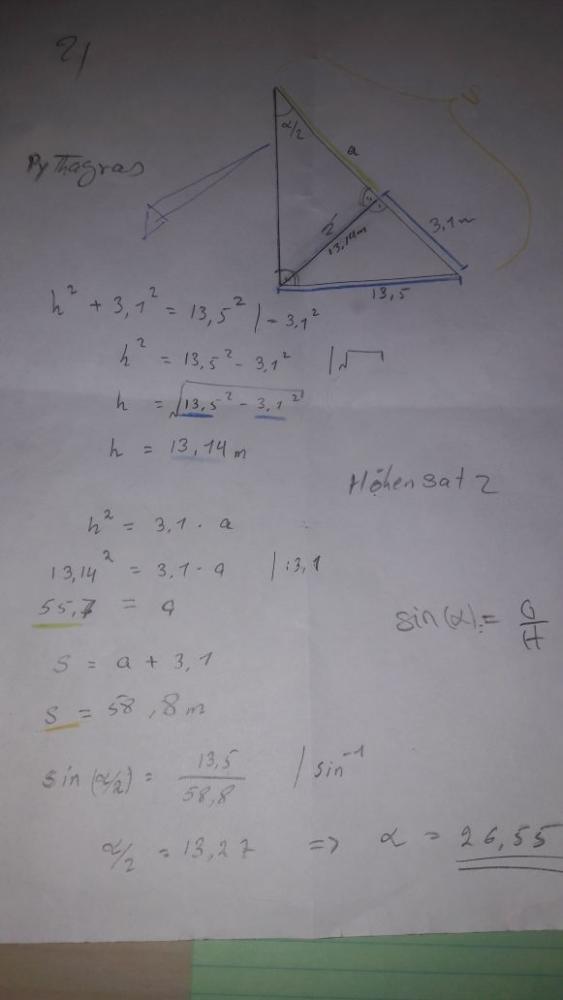 2)
α/2
a
Pythagras
h
13,14m
3,1m
13,5
h² + 3,1² = 13,5² | - 3,1²
h² = 13,5² - 3,1² | √
h = √13,5² - 3,1²
h = 13,14 m
Höhensatz
h² = 3,1 · a
13,14² = 3,1 · a | :3,1
55,7 = a
sin(α) = G/H
S = a + 3,1
S = 58,8m
sin(α/2) = 13,5/58,8 | sin⁻¹
α/2 = 13,27 => α = 26,55